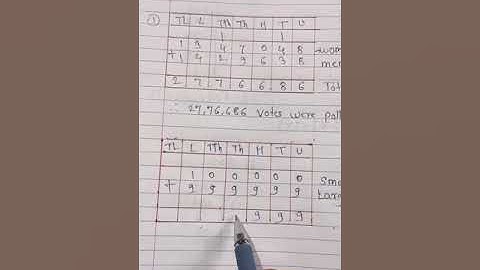 ① TL L TTh Th H T U
1 1
1 3 4 7 0 4 8 wom
+1 4 2 9 6 3 8 men
2 7 7 6 6 8 6 Tot
∴ 27,76,686 votes were poll
TL L TTh Th H T U
1 0 0 0 0 0 Sma
+ 9 9 9 9 9 9 Larg
9 9 9